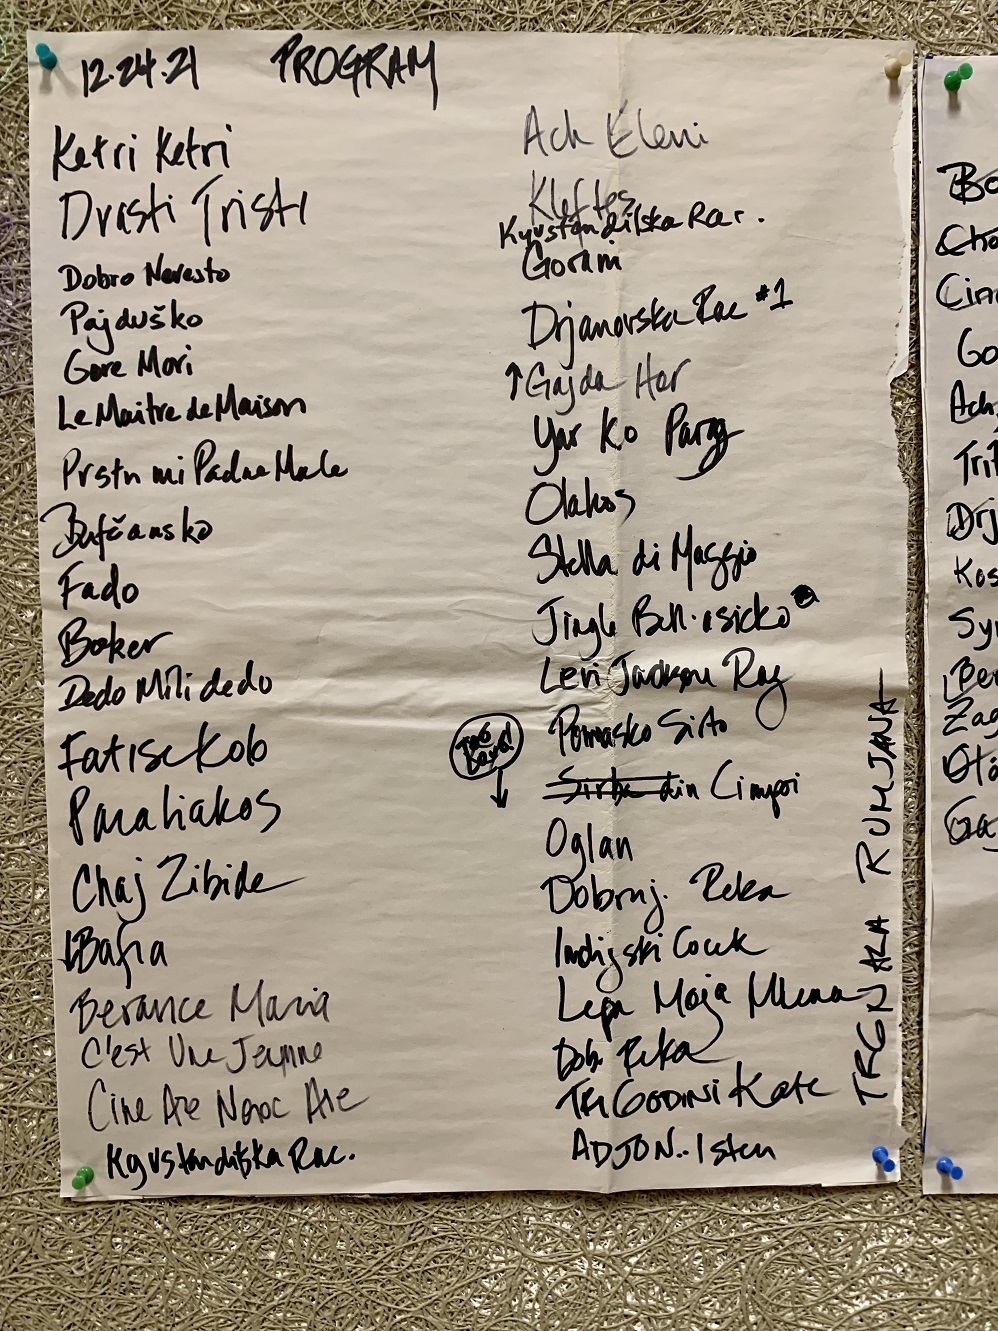 12.24.21 PROGRAM
Ketri Ketri
Drasti Tristi
Dobro Nevesto
Pajduško
Gore Mori
Le Maitre de Maison
Prstn mi Padna Male
Bufčansko
Fado
Boker
Dedo Mili dedo
Fatise Kolo
Paraliakos
Chaj Zibide
Bafra
Berance Maria
C'est Une Jeunne
Cine Are Noroc Are
Kyustendilska Rac.
Ach Eleni
Kleftes
Kyustendilska Rac.
Gorani
Drjanovska Rac #1
↑ Gajda Hor
Yar Ko Parag
Olakos
Stella di Maggio
Jingle Bell.asicko
Levi Jackson Rag
Pomasko Sirto
Too Loud!
↓
Sirba din Cimpoi
Oglan
Dobruj. Reka
Indijski Cocek
Lepa Moja Mlena
Dob. Reka
TRI GODINI Kate
ADJON.. Isten
TRGNALA RUMJANA
Be
Cho
Cin
Go
Ach,
Trit
Drj
Kos
Syr
Ber
Zag
Otó
Gaj